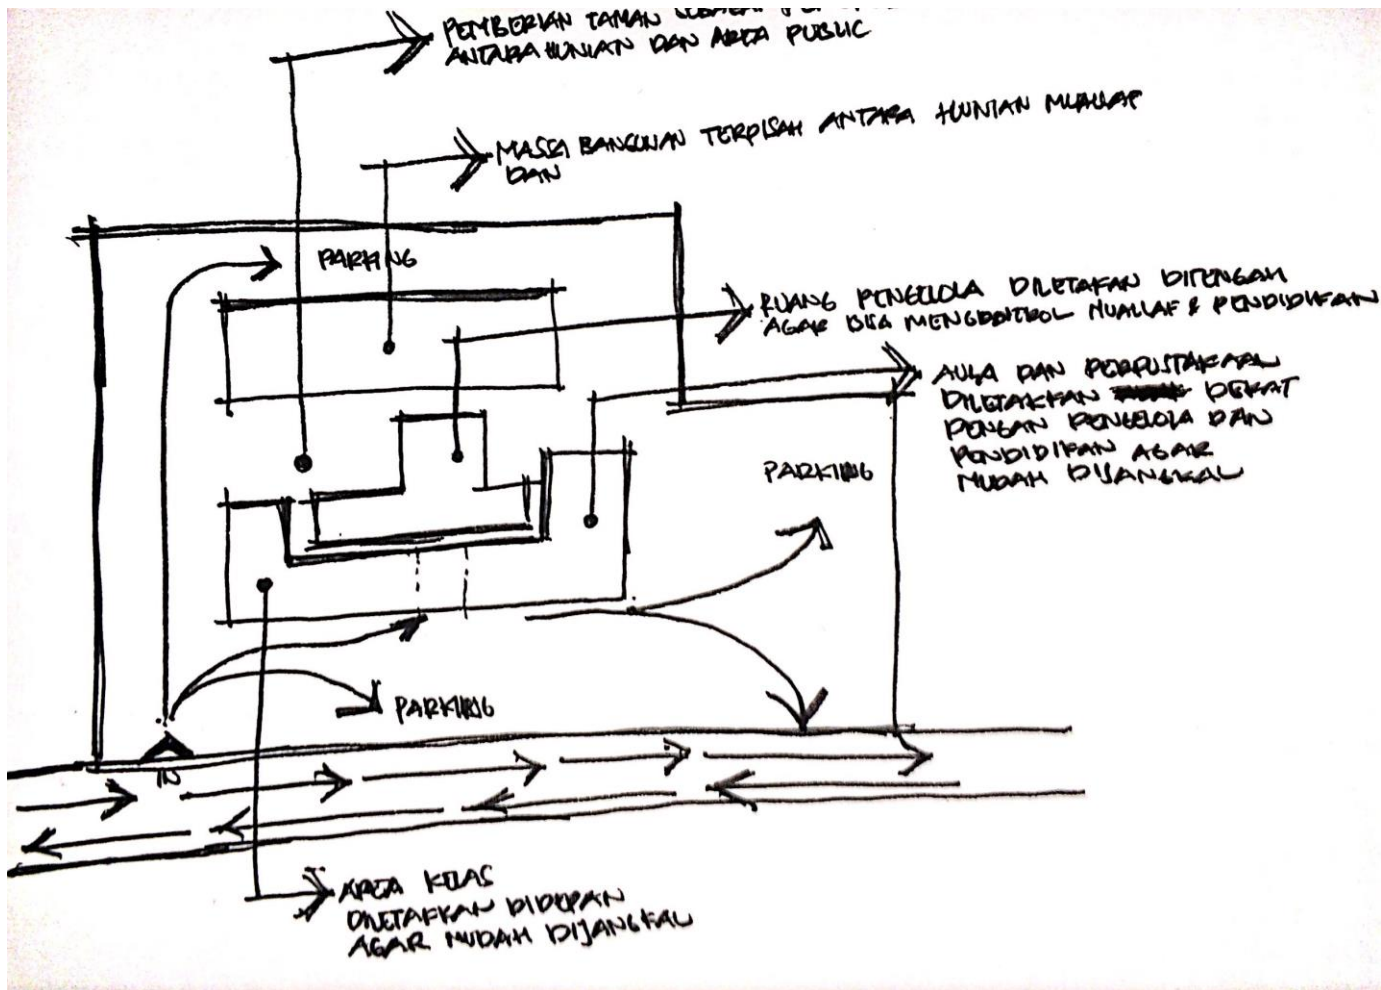 PEMBERIAN TAMAN
ANTARA HUNIAN DAN AREA PUBLIC
MASSA BANGUNAN TERPISAH ANTARA HUNIAN MUALLAF
DAN
PARKING
RUANG PENGELOLA DILETAKAN DITENGAH
AGAR BISA MENGONTROL MUALLAF & PENDIDIKAN
AULA DAN PERPUSTAKAAN
DILETAKKAN DEKAT
DENGAN PENGELOLA DAN
PENDIDIKAN AGAR
MUDAH DIJANGKAU
PARKING
PARKING
IN
AREA KELAS
DILETAKKAN DIDEPAN
AGAR MUDAH DIJANGKAU